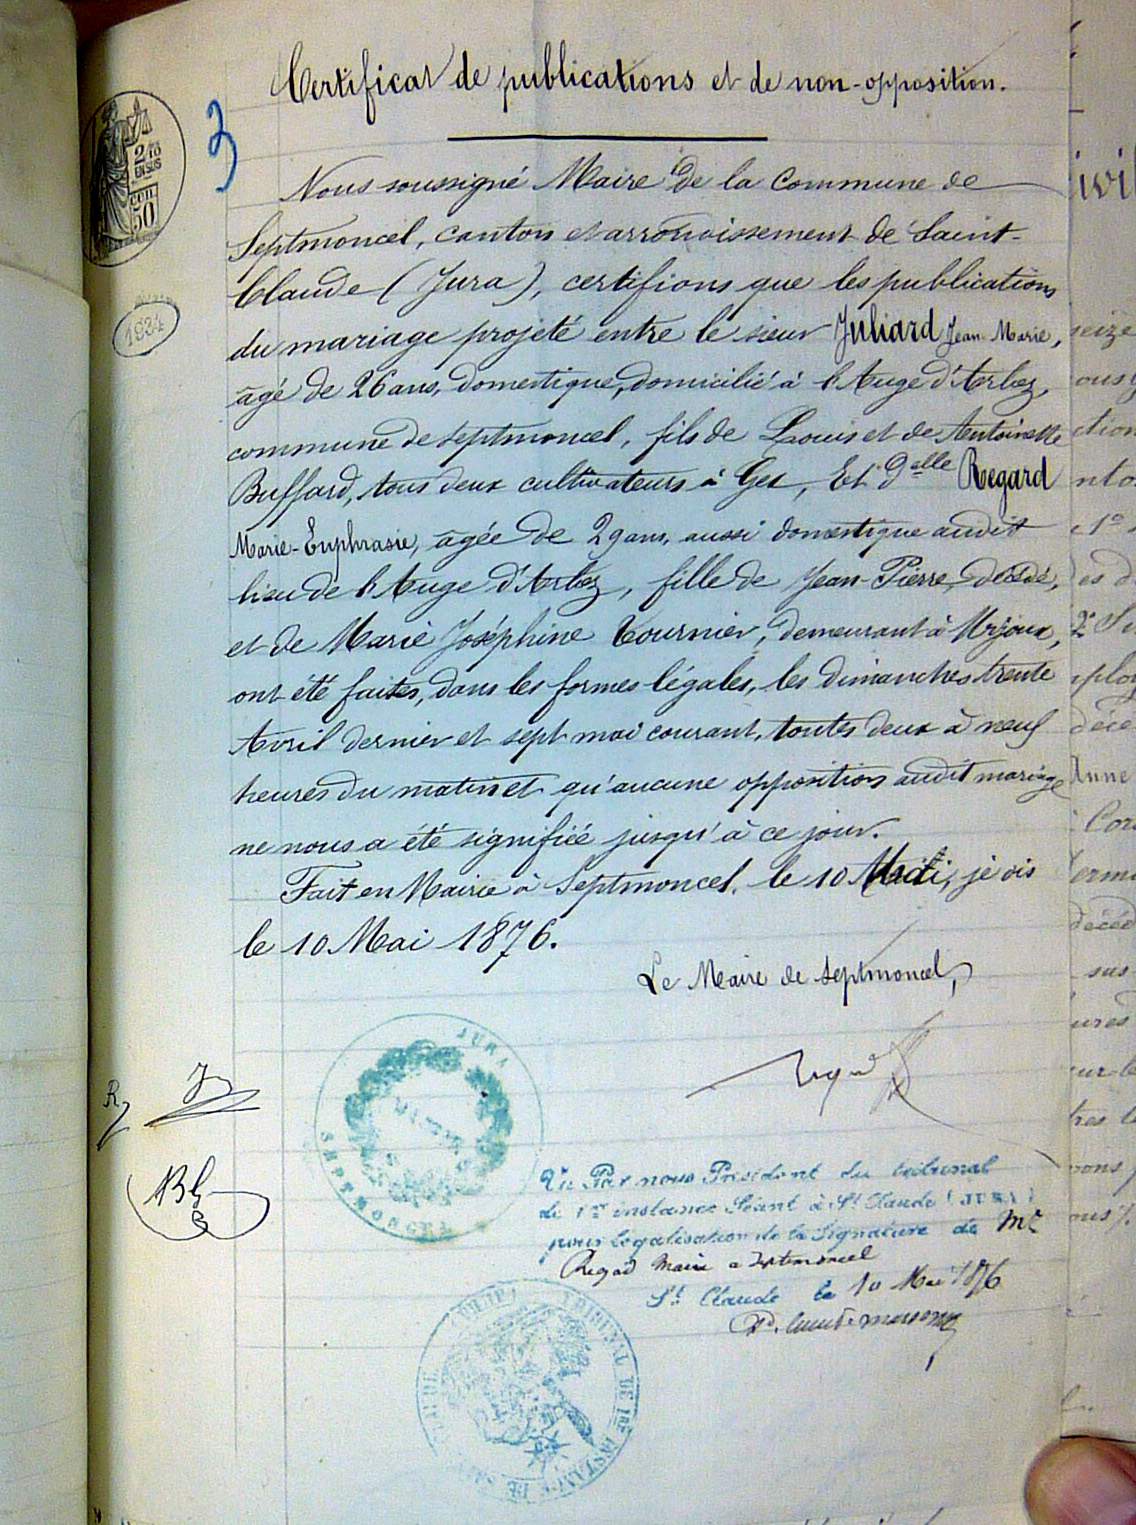 Certificat de publications et de non-opposition.
3
2/10
EN SUS
50
1834
Nous soussigné Maire de la Commune de
Septmoncel, canton et arrondissement de Saint-
Claude (Jura), certifions que les publications
du mariage projeté entre le sieur Juliard Jean-Marie,
âgé de 26 ans, domestique, domicilié à l'Auge d'Arbez,
commune de Septmoncel, fils de Louis et de Antoinette
Buffard, tous deux cultivateurs à Gex, Et Delle Regard
Marie-Euphrasie, âgée de 29 ans, aussi domestique audit
lieu de l'Auge d'Arbez, fille de Jean-Pierre, décédé,
et de Marie Joséphine Tournier, demeurant à
ont été faites, dans les formes légales, les dimanches trente
Avril dernier et sept mai courant, toutes deux à neuf
heures du matin et qu'aucune opposition audit mariage
ne nous a été signifiée jusqu'à ce jour.
Fait en Mairie à Septmoncel, le 10 je dis
le 10 Mai 1876.
Le Maire de Septmoncel,
Regad
JURA
SEPTMONCEL
Vu Par nous Président du tribunal
de 1re instance Séant à St Claude (JURA)
pour légalisation de la Signature de Mr
Regad Maire a Septmoncel
St Claude le 10 Mai 1876
TRIBUNAL DE 1RE INSTANCE DE